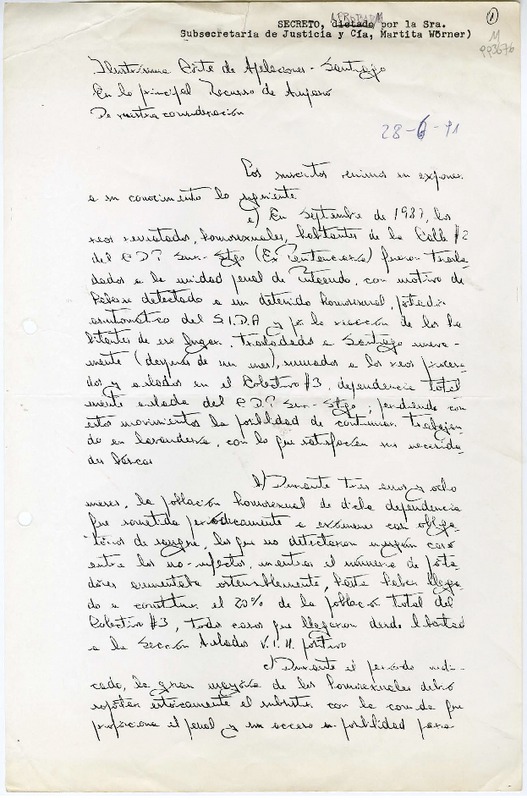 APROBADA
SECRETO, dictado por la Sra.
Subsecretaria de Justicia y Cía, Martita Wörner)
1
M
993676
Ilustrísima Corte de Apelaciones - Santiago
En lo principal Recurso de Amparo
De nuestra consideración
28-6-91
Los suscritos venimos en exponer
a su conocimiento lo siguiente
a) En Septiembre de 1987, los
reos rematados, homosexuales, habitantes de la Calle #2
del C.D.P. Sur-Stgo (Ex Penitenciaría) fueron trasla-
dados a la unidad penal de Putaendo, con motivo de
haberse detectado a un detenido homosexual, portador
asintomático del S.I.D.A y por la reacción de los ha-
bitantes de ese lugar. Trasladados a Santiago nueva-
mente (después de un mes), sumados a los reos procesa-
dos y aislados en el Colectivo #3, dependencia total-
mente aislada del C.D.P. Sur-Stgo, perdiendo con
estos movimientos la posibilidad de continuar trabajan-
do en lavandería, con lo que satisfacían sus necesida-
des básicas
b) Durante tres años y ocho
meses, la población homosexual de dicha dependencia
fue sometida periódicamente a exámenes casi obliga-
torios de sangre, los que no detectaron ningún caso
entre los no-infectos, mientras el número de porta-
dores aumentaba ostensiblemente, hasta haber llega-
do a constituir el 20% de la población total del
Colectivo #3, todos casos que llegaron desde libertad
a la Sección Aislados V.I.H. positivo
c) Durante el período indi-
cado, la gran mayoría de los homosexuales debió
soportar estoicamente el subsistir con la comida que
proporciona el penal y sin acceso a posibilidad para